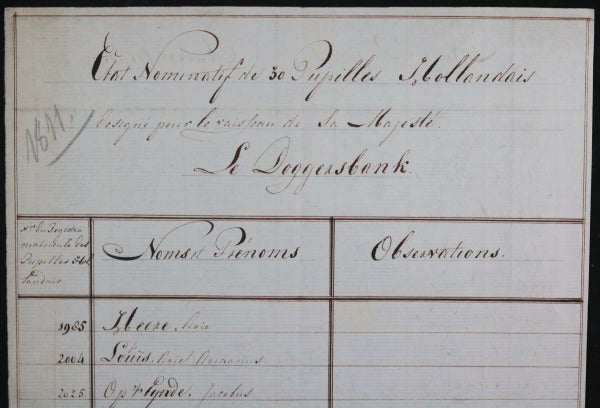 Etat Nominatif de 30 Pupilles Hollandais
besigné pour le vaisseau de Sa Majesté.
Le Doggersbank.
1811.
Nos du Registre
matricule des
Pupilles Hol
landais
Noms et Prénoms
Observations.
1985
2004 Louis, Carel
2025 Op't Eynde, Jacobus